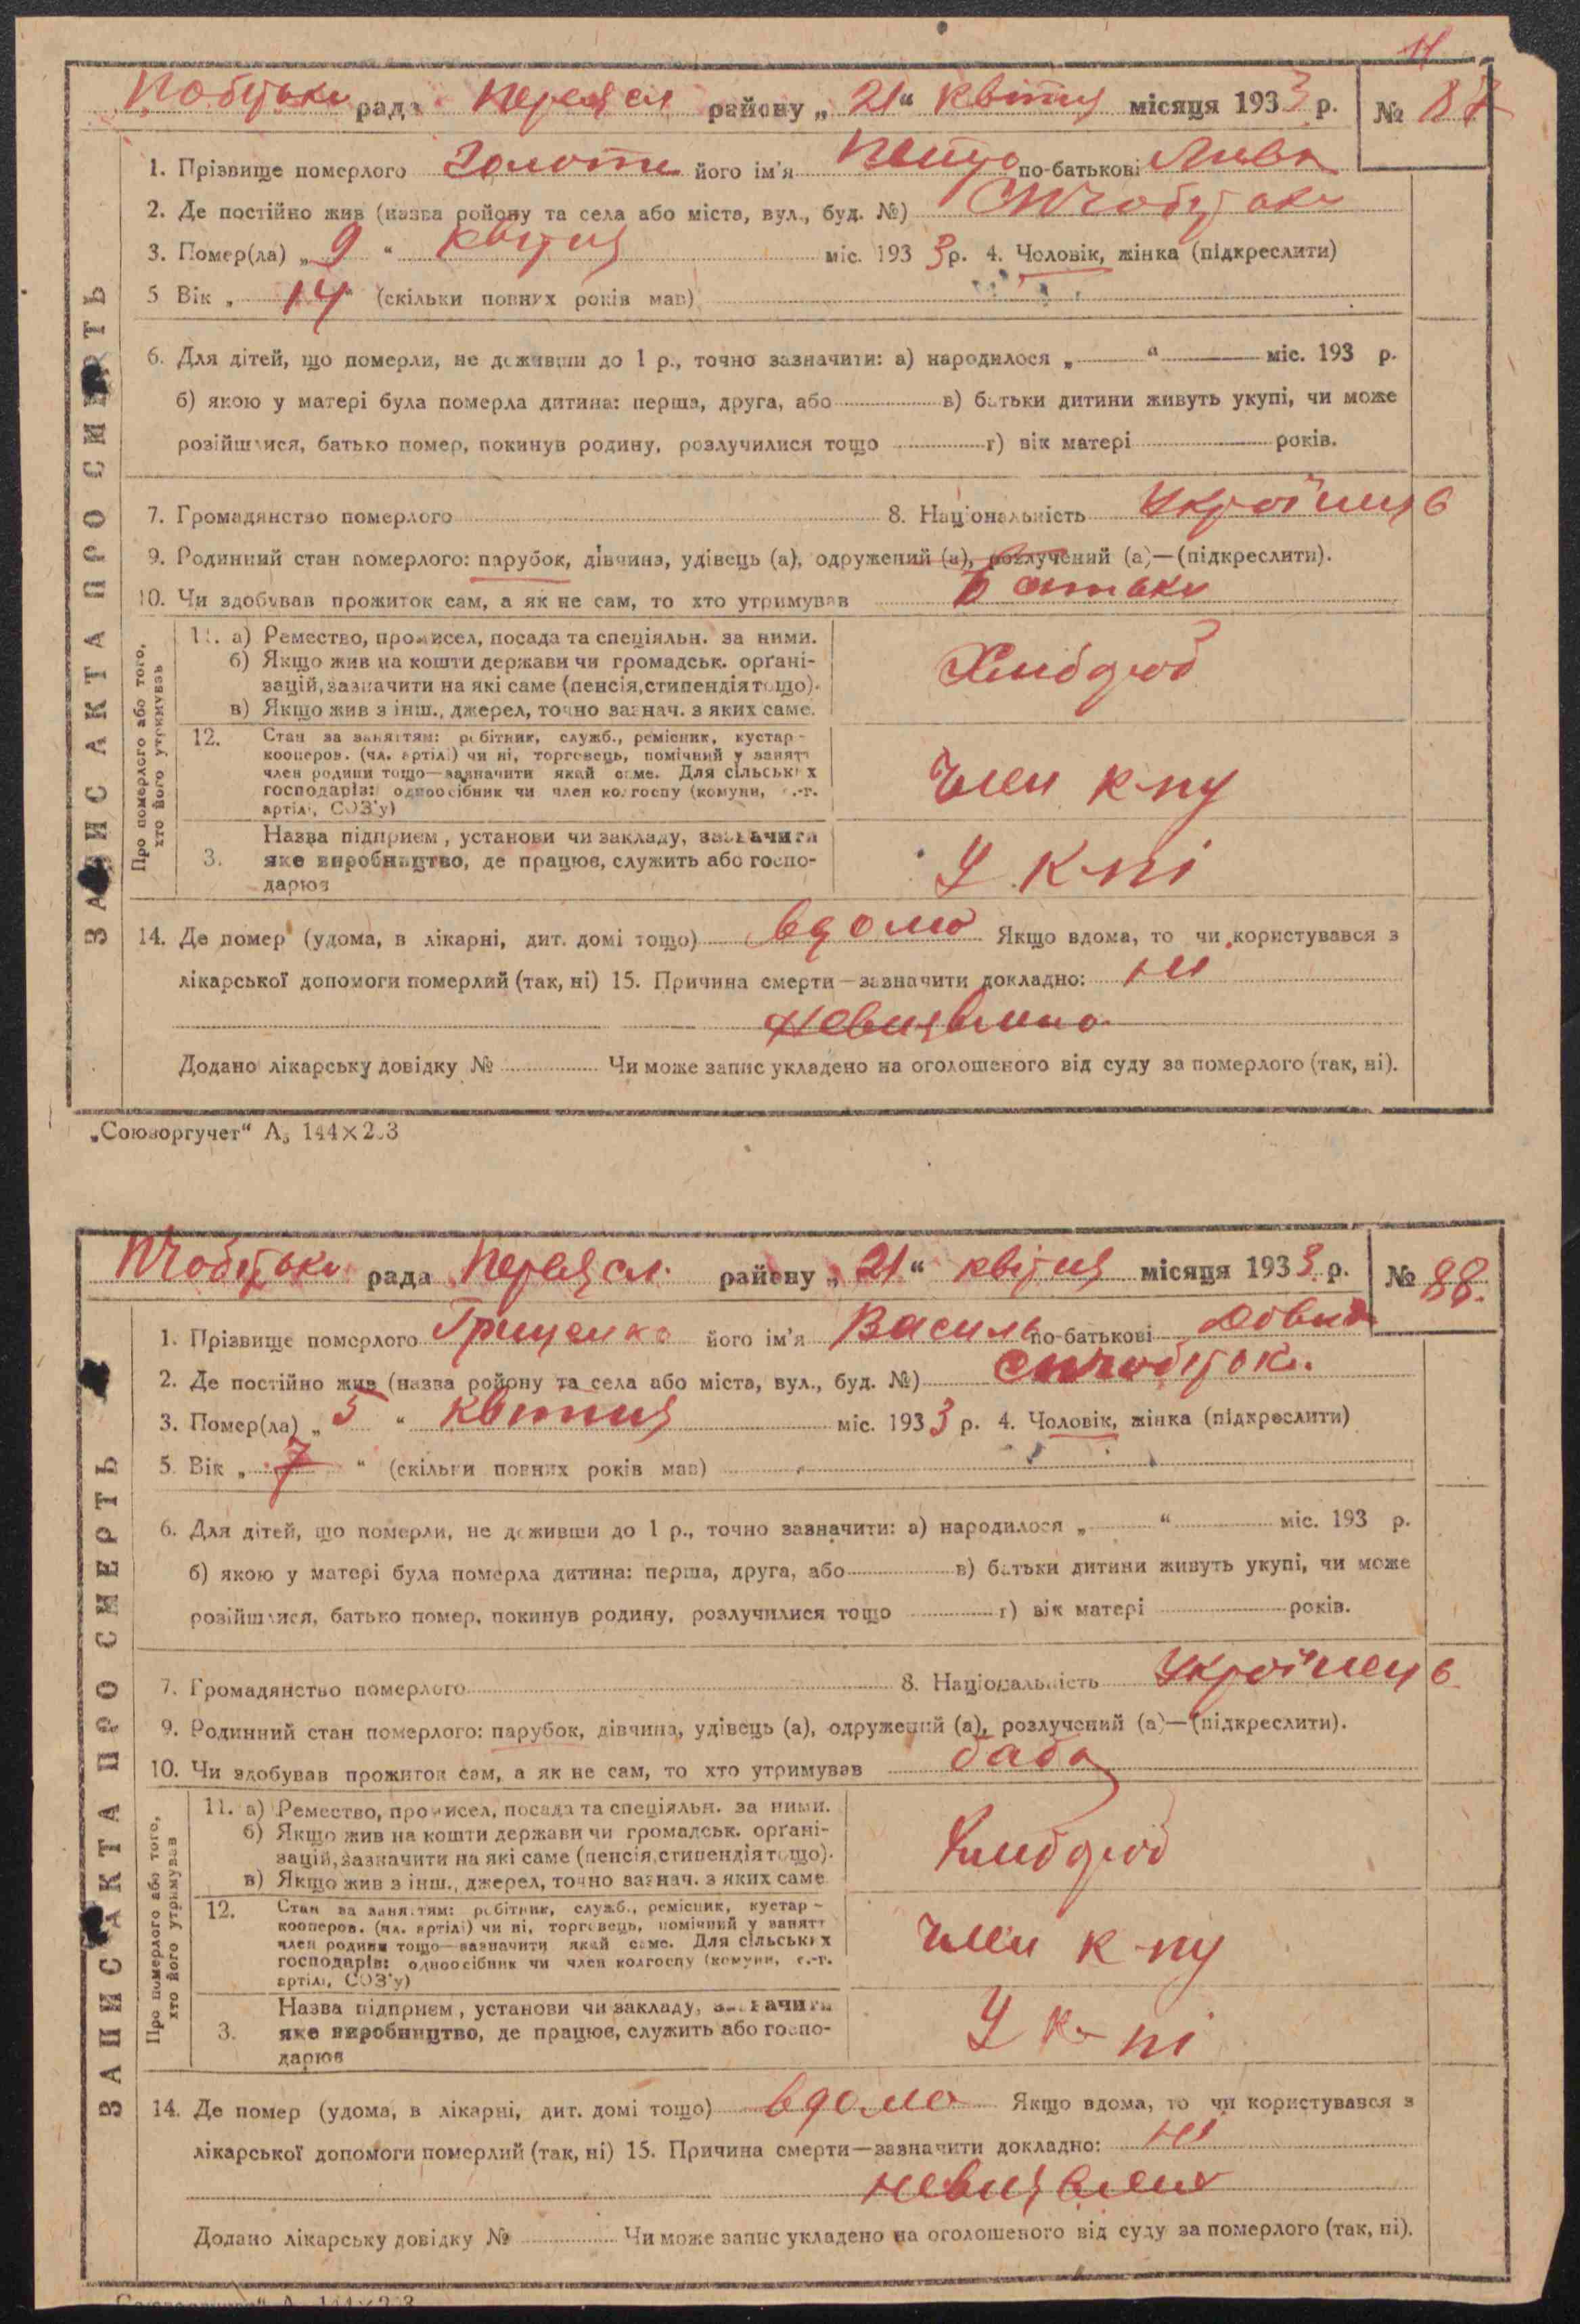 рада Переясл району „21“ квітня місяця 1933 р. № 87
1. Прізвище померлого його ім'я Петро по-батькові
2. Де постійно жив (назва ройону та села або міста, вул., буд. №)
3. Помер(ла) „9“ квітня міс. 1933 р. 4. Чоловік, жінка (підкреслити)
5 Вік „14“ (скільки повних років мав)
6. Для дітей, що померли, не доживши до 1 р., точно зазначити: а) народилося „ “ міс. 193 р.
б) якою у матері була померла дитина: перша, друга, або в) батьки дитини живуть укупі, чи може
розійшлися, батько помер, покинув родину, розлучилися тощо г) вік матері років.
7. Громадянство померлого 8. Національність Українець
9. Родинний стан померлого: парубок, дівчина, удівець (а), одружений (а), розлучений (а)—(підкреслити).
10. Чи здобував прожиток сам, а як не сам, то хто утримував батьки
ЗАПИС АКТА ПРО СМЕРТЬ
Про померлого або того, хто його утримував
11. а) Ремество, промисел, посада та спеціяльн. за ними.
б) Якщо жив на кошти держави чи громадськ. орґані-
зацій, зазначити на які саме (пенсія, стипендія тощо).
в) Якщо жив з інш., джерел, точно зазнач. з яких саме.
Хлибороб
12. Стан за заняттям: робітник, служб., ремісник, кустар-
кооперов. (чл. артілі) чи ні, торговець, помічний у занятт
член родини тощо—зазначити який саме. Для сільських
господарів: одноосібник чи член колгоспу (комуни, с.-г.
артілі, СОЗ'у)
Член к-пу
3. Назва підприєм, установи чи закладу, зазначити
яке виробництво, де працює, служить або госпо-
дарює
У к-пі
14. Де помер (удома, в лікарні, дит. домі тощо) вдома Якщо вдома, то чи користувався з
лікарської допомоги померлий (так, ні) 15. Причина смерти—зазначити докладно: ні
Додано лікарську довідку № Чи може запис укладено на оголошеного від суду за померлого (так, ні).
„Союзоргучет“ А₅ 144×203
рада Переясл. району „21“ квітня місяця 1933 р. № 88.
1. Прізвище померлого Грищенко його ім'я Василь по-батькові
2. Де постійно жив (назва ройону та села або міста, вул., буд. №)
3. Помер(ла) „5“ квітня міс. 1933 р. 4. Чоловік, жінка (підкреслити)
5. Вік „7“ (скільки повних років мав)
6. Для дітей, що померли, не доживши до 1 р., точно зазначити: а) народилося „ “ міс. 193 р.
б) якою у матері була померла дитина: перша, друга, або в) батьки дитини живуть укупі, чи може
розійшлися, батько помер, покинув родину, розлучилися тощо г) вік матері років.
7. Громадянство померлого 8. Національність Українець
9. Родинний стан померлого: парубок, дівчина, удівець (а), одружений (а), розлучений (а)—(підкреслити).
10. Чи здобував прожиток сам, а як не сам, то хто утримував баба
ЗАПИС АКТА ПРО СМЕРТЬ
Про померлого або того, хто його утримував
11. а) Ремество, промисел, посада та спеціяльн. за ними.
б) Якщо жив на кошти держави чи громадськ. орґані-
зацій, зазначити на які саме (пенсія, стипендія тощо).
в) Якщо жив з інш., джерел, точно зазнач. з яких саме
Хлибороб
12. Стан за заняттям: робітник, служб., ремісник, кустар-
кооперов. (чл. артілі) чи ні, торговець, помічний у занятт
член родини тощо—зазначити який саме. Для сільських
господарів: одноосібник чи член колгоспу (комуни, с.-г.
артілі, СОЗ'у)
Член к-пу
3. Назва підприєм, установи чи закладу, зазначити
яке виробництво, де працює, служить або госпо-
дарює
У к-пі
14. Де помер (удома, в лікарні, дит. домі тощо) вдома Якщо вдома, то чи користувався з
лікарської допомоги померлий (так, ні) 15. Причина смерти—зазначити докладно: ні
Додано лікарську довідку № Чи може запис укладено на оголошеного від суду за померлого (так, ні).